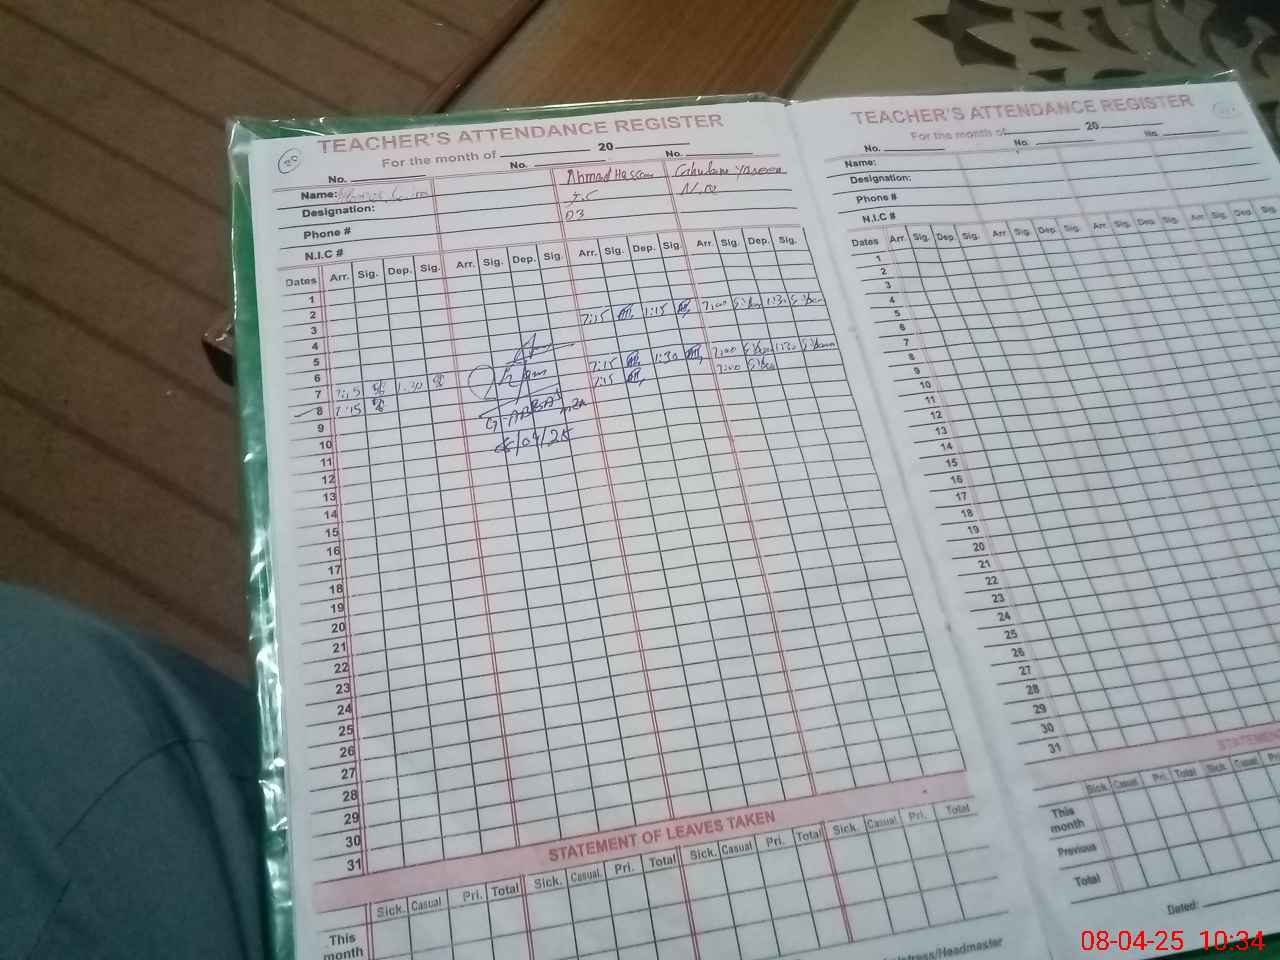 20
TEACHER'S ATTENDANCE REGISTER
For the month of 20
No. No. No.
Name: Ahmad Hassan Ghulam Yaseen
Designation:
Phone # 03
N.I.C #
Dates Arr. Sig. Dep. Sig. Arr. Sig. Dep. Sig. Arr. Sig. Dep. Sig. Arr. Sig. Dep. Sig.
1
2
3
4 7:15 1:15 7:00 1:30
5
6
7 7:15 1:30 7:15 1:30 7:00 1:30
8 7:15 7:15 7:00
G-ABBAS
8/04/25
9
10
11
12
13
14
15
16
17
18
19
20
21
22
23
24
25
26
27
28
29
30
31
STATEMENT OF LEAVES TAKEN
Sick. Casual Pri. Total Sick. Casual. Pri. Total Sick. Casual Pri. Total Sick. Casual. Pri. Total
This month
Headmaster
TEACHER'S ATTENDANCE REGISTER
For the month of 20
No. No. No.
Name:
Designation:
Phone #
N.I.C #
Dates Arr. Sig. Dep. Sig. Arr. Sig. Dep. Sig. Arr. Sig. Dep. Sig. Arr. Sig. Dep. Sig.
1
2
3
4
5
6
7
8
9
10
11
12
13
14
15
16
17
18
19
20
21
22
23
24
25
26
27
28
29
30
31
STATEMEN
Sick. Casual Pri. Total Sick. Casual. Pri.
This month
Previous
Total
Dated:
08-04-25 10:34